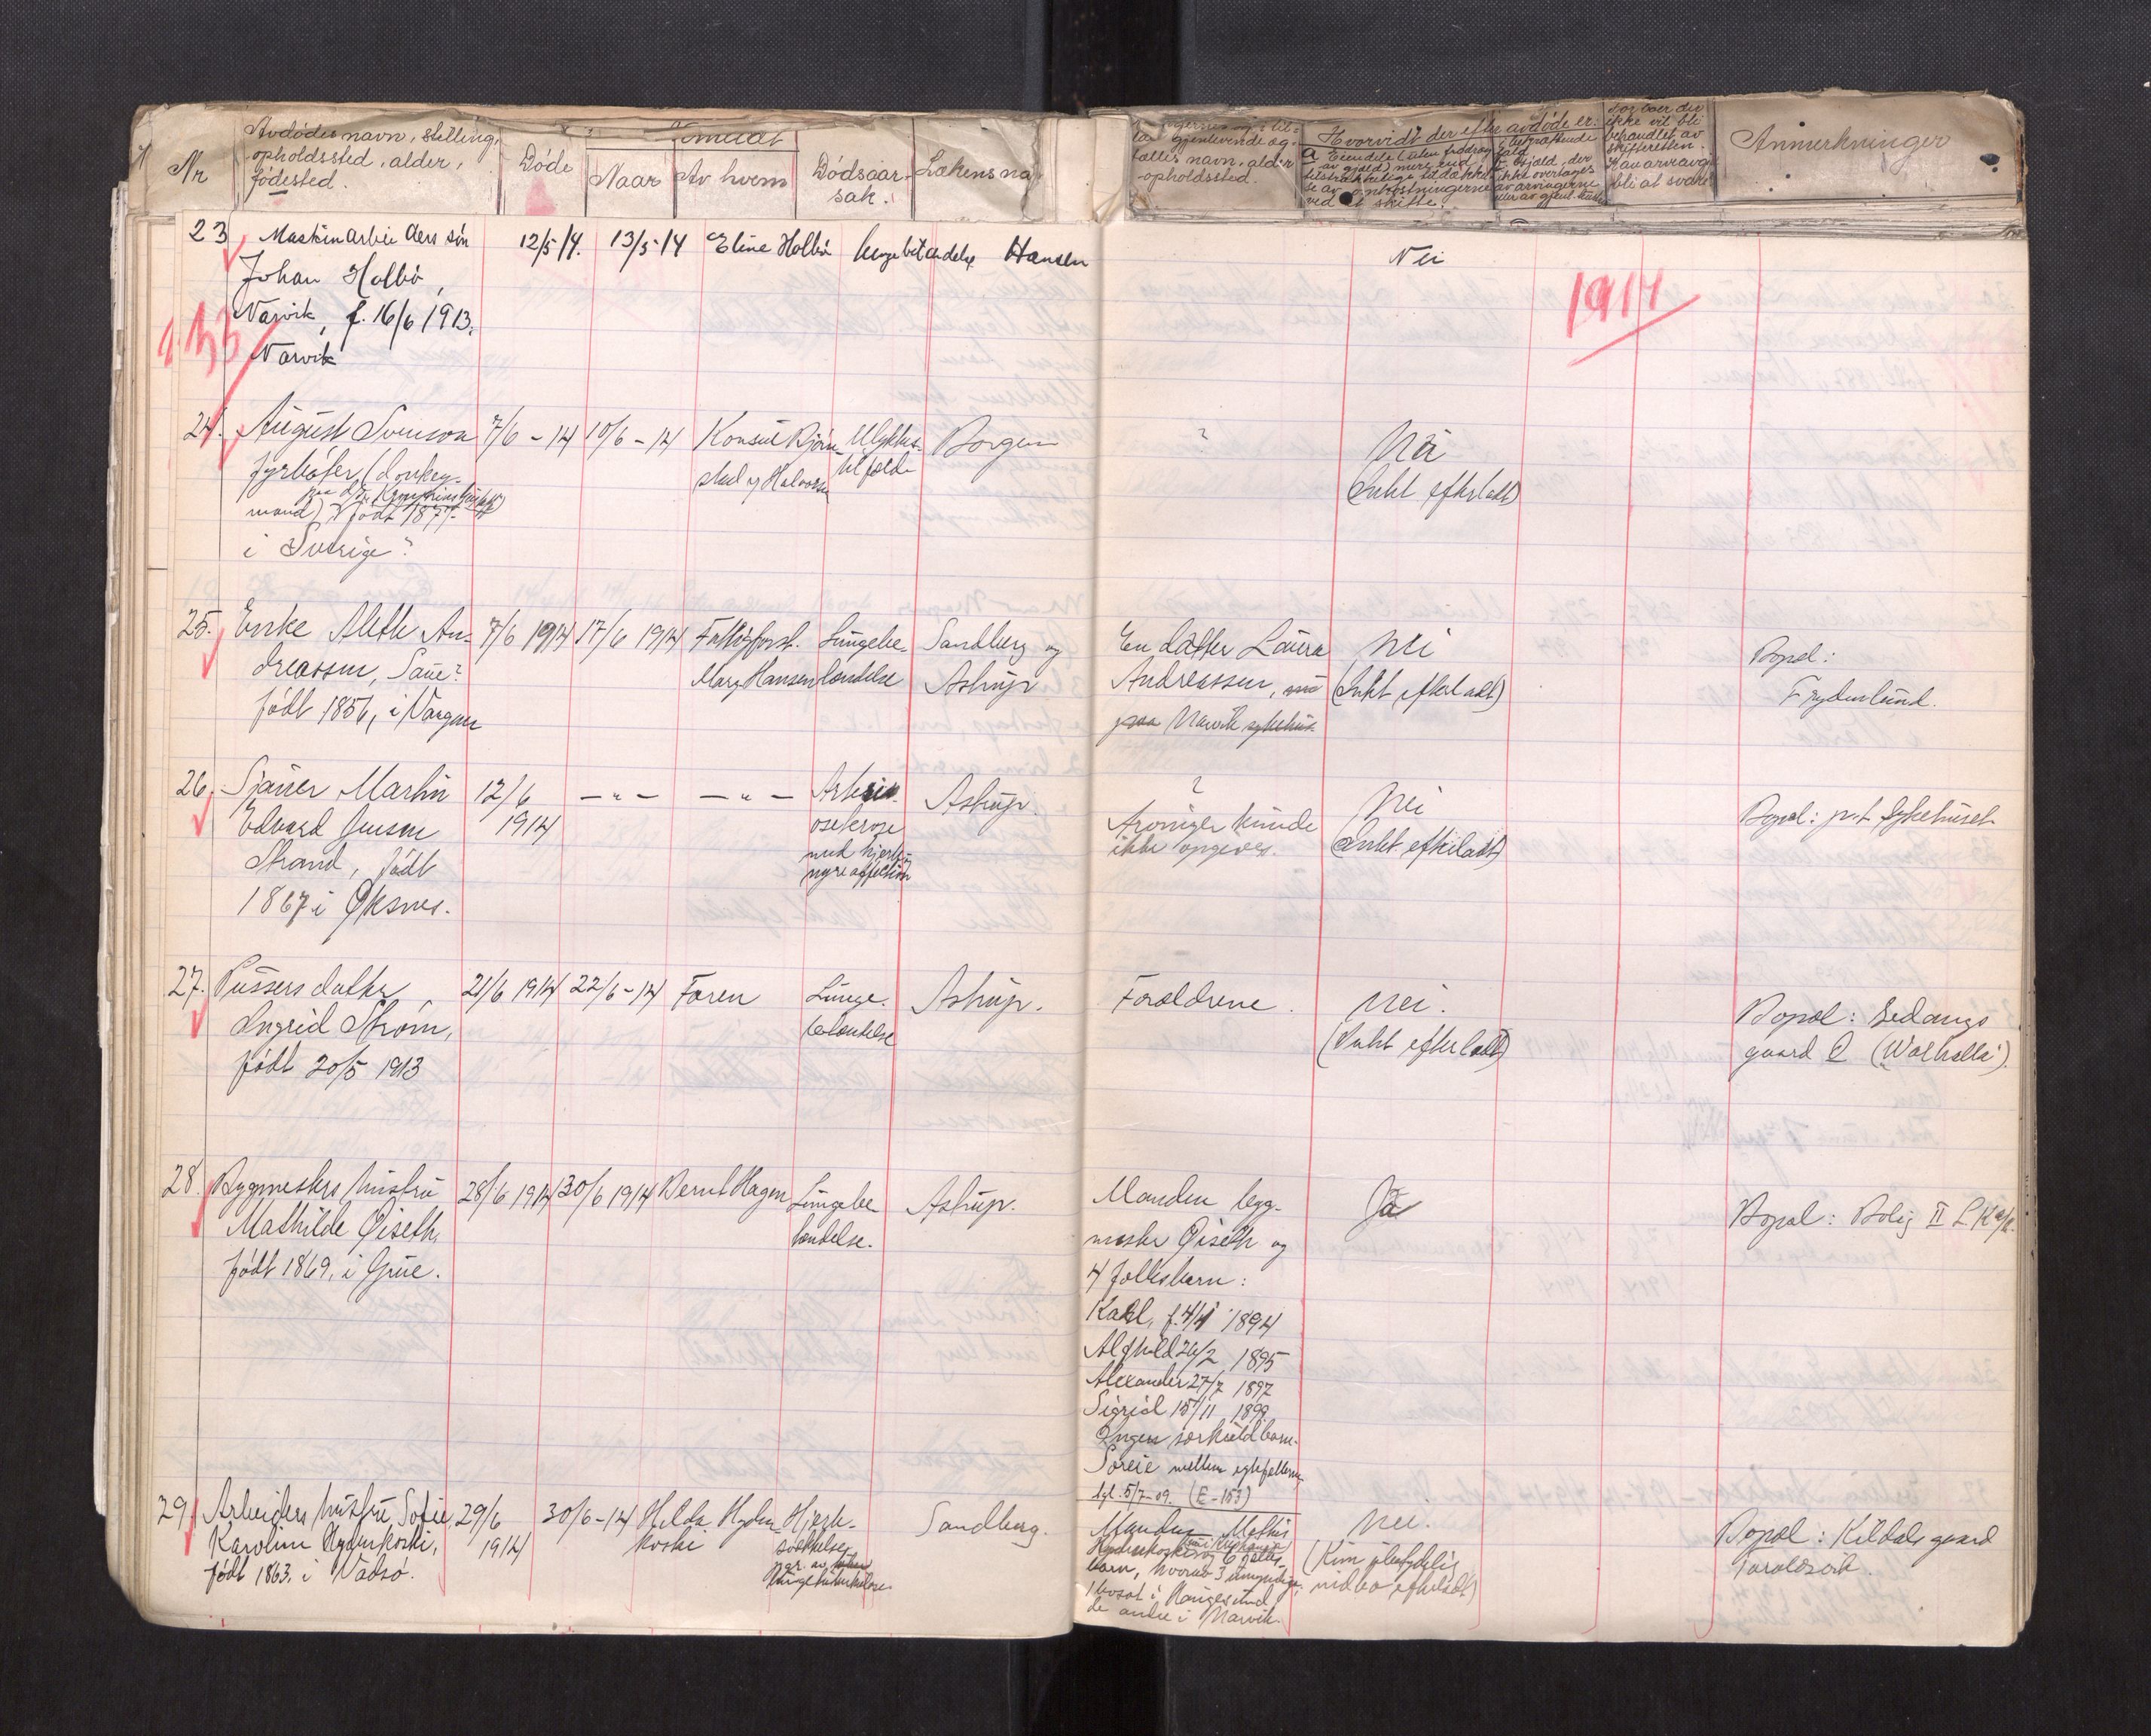 Nr
Avdødes navn, stilling,
opholdssted, alder,
fødested.
Døde
Anmeldt
Naar
Av hvem
Dødsaar-
sak.
Lækens na
gjenlevende æg-
tefælles navn, alder
-opholdssted.
Hvorvidt der efter avdøde er:
ved et skifte.
ikke vil bli
behandlet av
skifteretten.
bli at svare
Anmerkninger
23
Maskinarbeiders søn
Johan Holbø,
Narvik, f. 16/6 1913,
Narvik
12/5 14.
13/5-14
Eline Holbø
lungebetændelse
Hansen
Nei
1914
24.
August Svenson
fyrbøter (donkey-
mand) født 187
i Sverige?
7/6 - 14
10/6 - 14
Konsul Bjørn
stad og Halvorsen
Ulykkes-
tilfælde
Borgen
?
Nei
(Intet efterladt)
25.
Enke Aleth An-
dreassen, Saue?
født 1856, i Vargen
7/6 1914
17/6 1914
Fattigforst.
Marg. Hansen
Lungebe
tændelse
Sandberg og
Astrup
En datter Laura
Andreassen,
paa Narvik sykehus
Nei
(Intet efterladt)
Bopæl:
Frydenlund.
26.
Sjauer Martin
Edvard Jensen
Strand, født
1867 i Øksnes.
12/6
1914
— " —
— " —
Arterio-
sclerose
med hjerte og
nyreaffektion
Astrup.
?
Arvinger kunde
ikke opgives.
Nei
(Intet efterladt)
Bopæl: p.t. Sykehuset
27.
Pussers datter
Ingrid Strøm,
født 20/5 1913
21/6 1914
22/6-14
Faren
Lunge-
betændelse
Astrup.
Forældrene.
Nei.
(Intet efterladt)
Bopæl: Sedangs
gaard 2 ("Walhalla").
28.
Bygmesters hustru
Mathilde Øiseth,
født 1869, i Grue.
28/6 1914
30/6 1914
Bernt Hagen
Lungebe
tændelse.
Astrup.
Manden byg-
mester Øiseth og
4 fællesbarn:
Karl, f. 4/4 1894
Alfhild 26/2 1895
Alexander 27/7 1897
Sigrid 15/11 1898
Ingen særkuldbarn.
Særeie mellem egtefællerne
tgl. 5/7-09. (E-153)
Ja
Bopæl: Bolig II L K a/b.
29.
Arbeiders hustru Sofie
Karoline Hydenkoski,
født 1863, i Vadsø.
29/6
1914
30/6-14
Hilda Hyden
koski
Hjerte-
svækkelse
par. av
lungetuberkulose.
Sandberg.
Manden Mathis
Hydenkoski og 6 fælles-
barn, hvorav 3 umyndige,
1 bosat i Haugesund
de andre i Narvik.
Nei.
(Kun ubetydelig
indbo efterladt)
Bopæl: Kildals gaard
Taraldsvik.